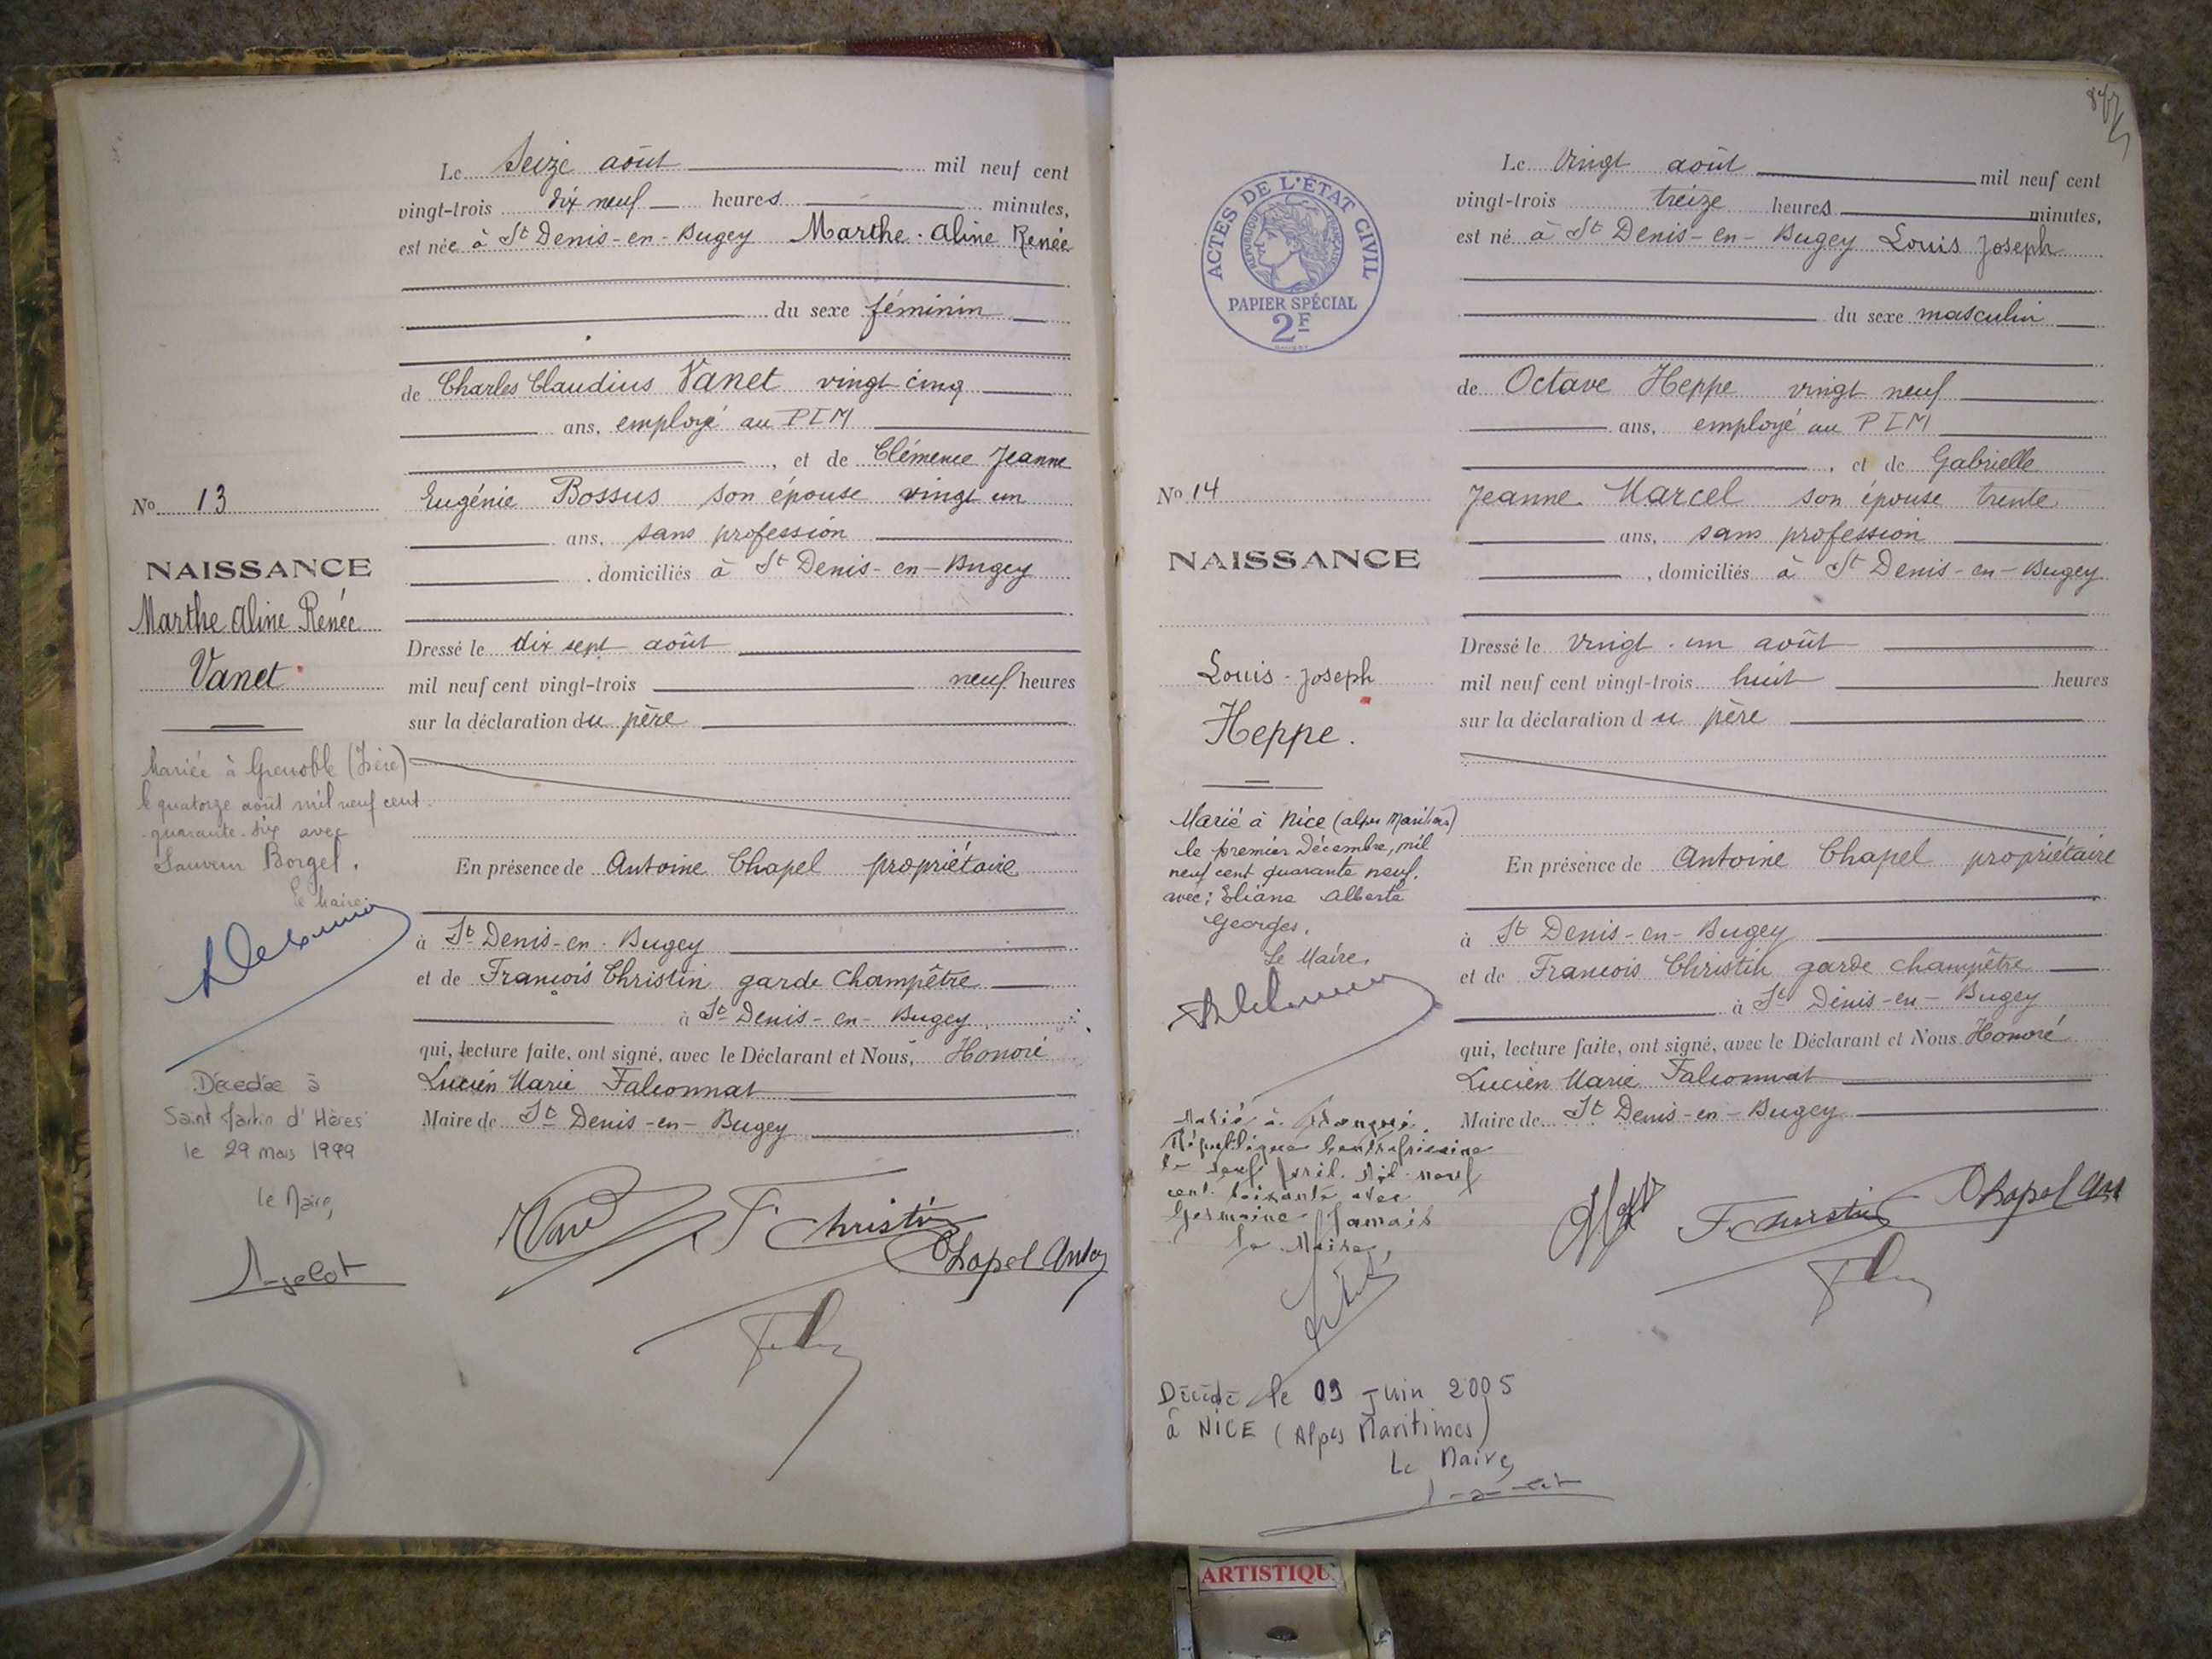 Le Seize août mil neuf cent
vingt-trois dix neuf heures minutes,
est née à St Denis-en-Bugey Marthe Aline Renée
du sexe féminin
de Charles Claudius Vanet vingt cinq
ans, employé au PLM
, et de Clémence Jeanne
Eugénie Bossus son épouse vingt un
ans, sans profession
, domiciliés à St Denis-en-Bugey
Dressé le dix sept août
mil neuf cent vingt-trois neuf heures
sur la déclaration du père
En présence de Antoine Chapel propriétaire
à St Denis-en-Bugey
et de François Christin garde champêtre
à St Denis-en-Bugey
qui, lecture faite, ont signé, avec le Déclarant et Nous, Honoré
Lucien Marie Falconnat
Maire de St Denis-en-Bugey
F Christin
Chapel Antoi
No 13
NAISSANCE
Marthe Aline Renée
Vanet
Mariée à Grenoble (Isère)
le quatorze août mil neuf cent
quarante-six avec
Sauveur Borgel.
le Maire
Décédée à
Saint Martin d'Hères
le 29 mars 1999
le Maire,
ACTES DE L'ÉTAT CIVIL
RÉPUBLIQUE FRANÇAISE
PAPIER SPÉCIAL
2F
No 14
NAISSANCE
Louis-Joseph
Heppe.
Marié à Nice (alpes Maritimes)
le premier Décembre, mil
neuf cent quarante neuf.
avec: Eliane Alberte
Georges.
Le Maire.
Marié à
République Centrafricaine
le neuf Avril Mil neuf
cent soixante avec
Germaine Jamais
Le Maire,
Décédé le 09 Juin 2005
à NICE (Alpes Maritimes)
Le Maire,
Le Vingt août mil neuf cent
vingt-trois treize heures minutes,
est né à St Denis-en-Bugey Louis Joseph
du sexe masculin
de Octave Heppe vingt neuf
ans, employé au PLM
, et de Gabrielle
Jeanne Marcel son épouse trente
ans, sans profession
, domiciliés à St Denis-en-Bugey
Dressé le vingt-un août
mil neuf cent vingt-trois huit heures
sur la déclaration du père
En présence de Antoine Chapel propriétaire
à St Denis-en-Bugey
et de François Christin garde champêtre
à St Denis-en-Bugey
qui, lecture faite, ont signé, avec le Déclarant et Nous Honoré
Lucien Marie Falconnat
Maire de St Denis-en-Bugey
F Christin
Chapel Ant
ARTISTIQU